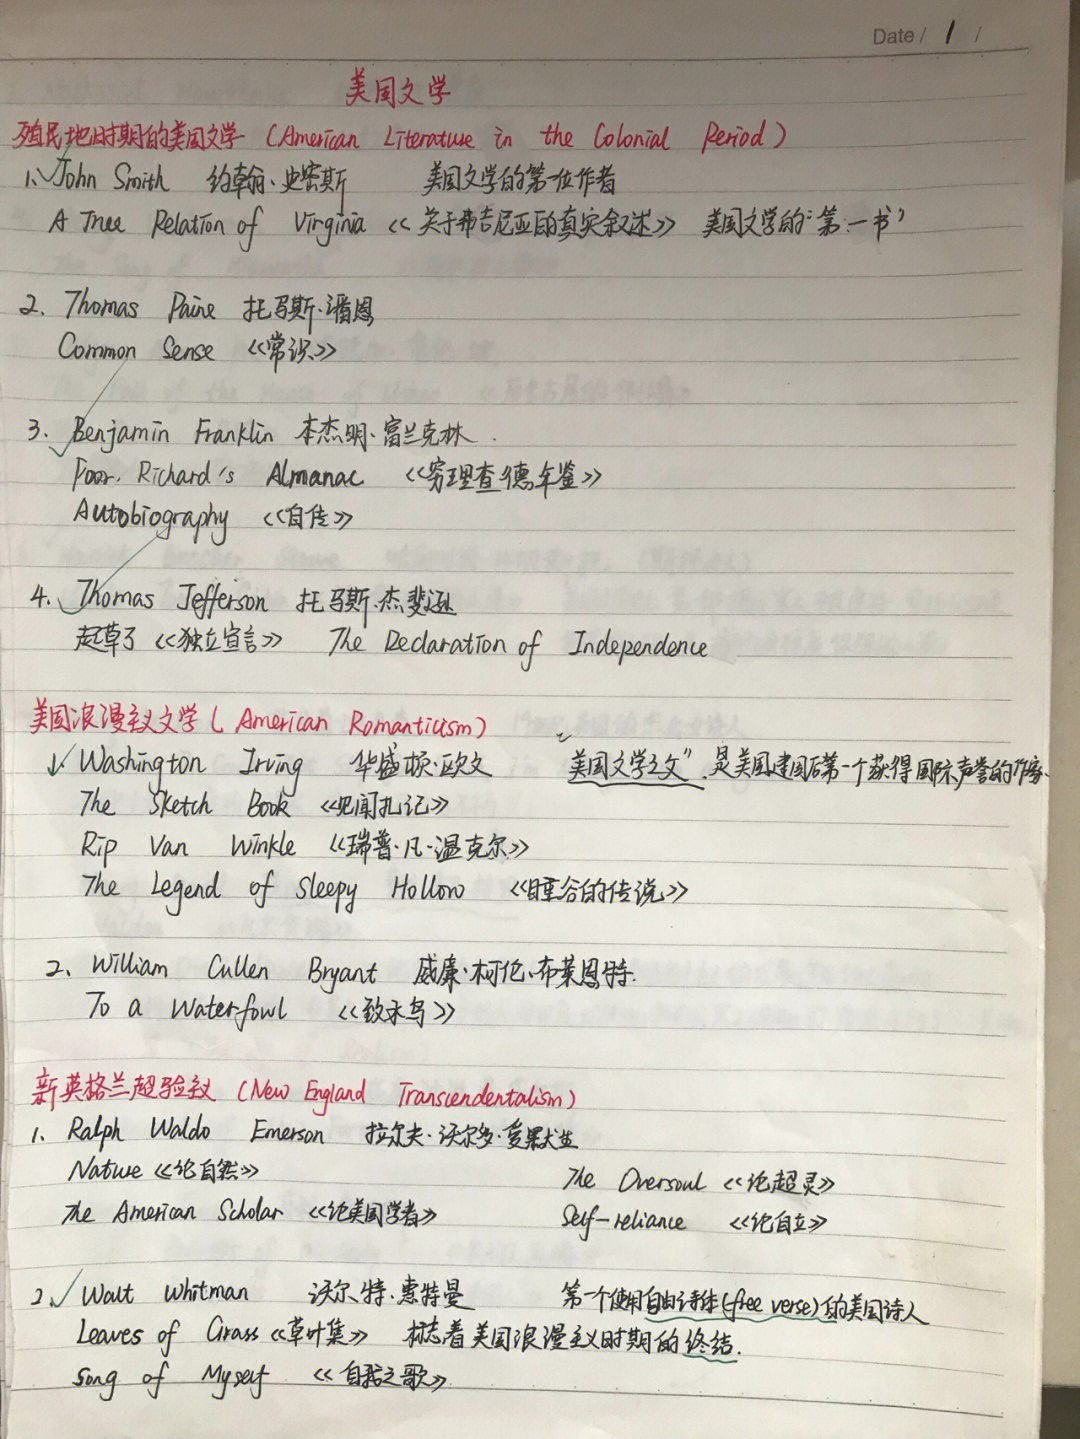 Date / 1 /
美国文学
殖民地时期的美国文学 (American Literature in the Colonial Period)
1. John Smith 约翰·史密斯 美国文学的第一位作者
A True Relation of Virginia 《关于弗吉尼亚的真实叙述》 美国文学的“第一书”
2. Thomas Paine 托马斯·潘恩
Common Sense 《常识》
3. Benjamin Franklin 本杰明·富兰克林.
Poor. Richard's Almanac 《穷理查德年鉴》
Autobiography 《自传》
4. Thomas Jefferson 托马斯·杰斐逊
起草了《独立宣言》 The Declaration of Independence
美国浪漫主义文学 (American Romanticism)
Washington Irving 华盛顿·欧文 “美国文学之父”.是美国建国后第一个获得国际声誉的作家.
The Sketch Book 《见闻扎记》
Rip Van Winkle 《瑞普·凡·温克尔》
The Legend of Sleepy Hollow 《睡谷的传说》
2. William Cullen Bryant 威廉·柯伦·布莱恩特.
To a Waterfowl 《致水鸟》
新英格兰超验主义 (New England Transcendentalism)
1. Ralph Waldo Emerson 拉尔夫·沃尔多·爱默生
Nature 《论自然》 The Oversoul 《论超灵》
The American Scholar 《论美国学者》 Self-reliance 《论自立》
2. Walt Whitman 沃尔特·惠特曼 第一个使用自由诗体(free verse)的美国诗人
Leaves of Grass 《草叶集》 标志着美国浪漫主义时期的终结.
Song of Myself 《自我之歌》